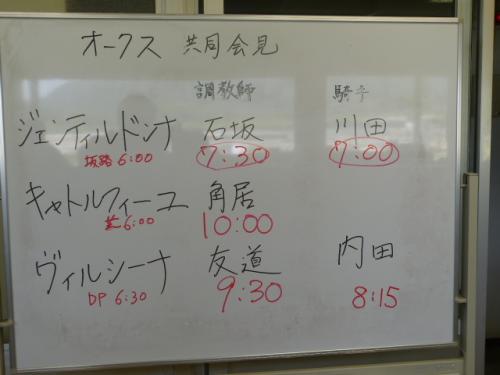 オークス 共同会見
調教師 騎手
ジェンティルドンナ 石坂 川田
坂路 6:00 7:30 7:00
キャトルフィーユ 角居
芝 6:00 10:00
ヴィルシーナ 友道 内田
DP 6:30 9:30 8:15